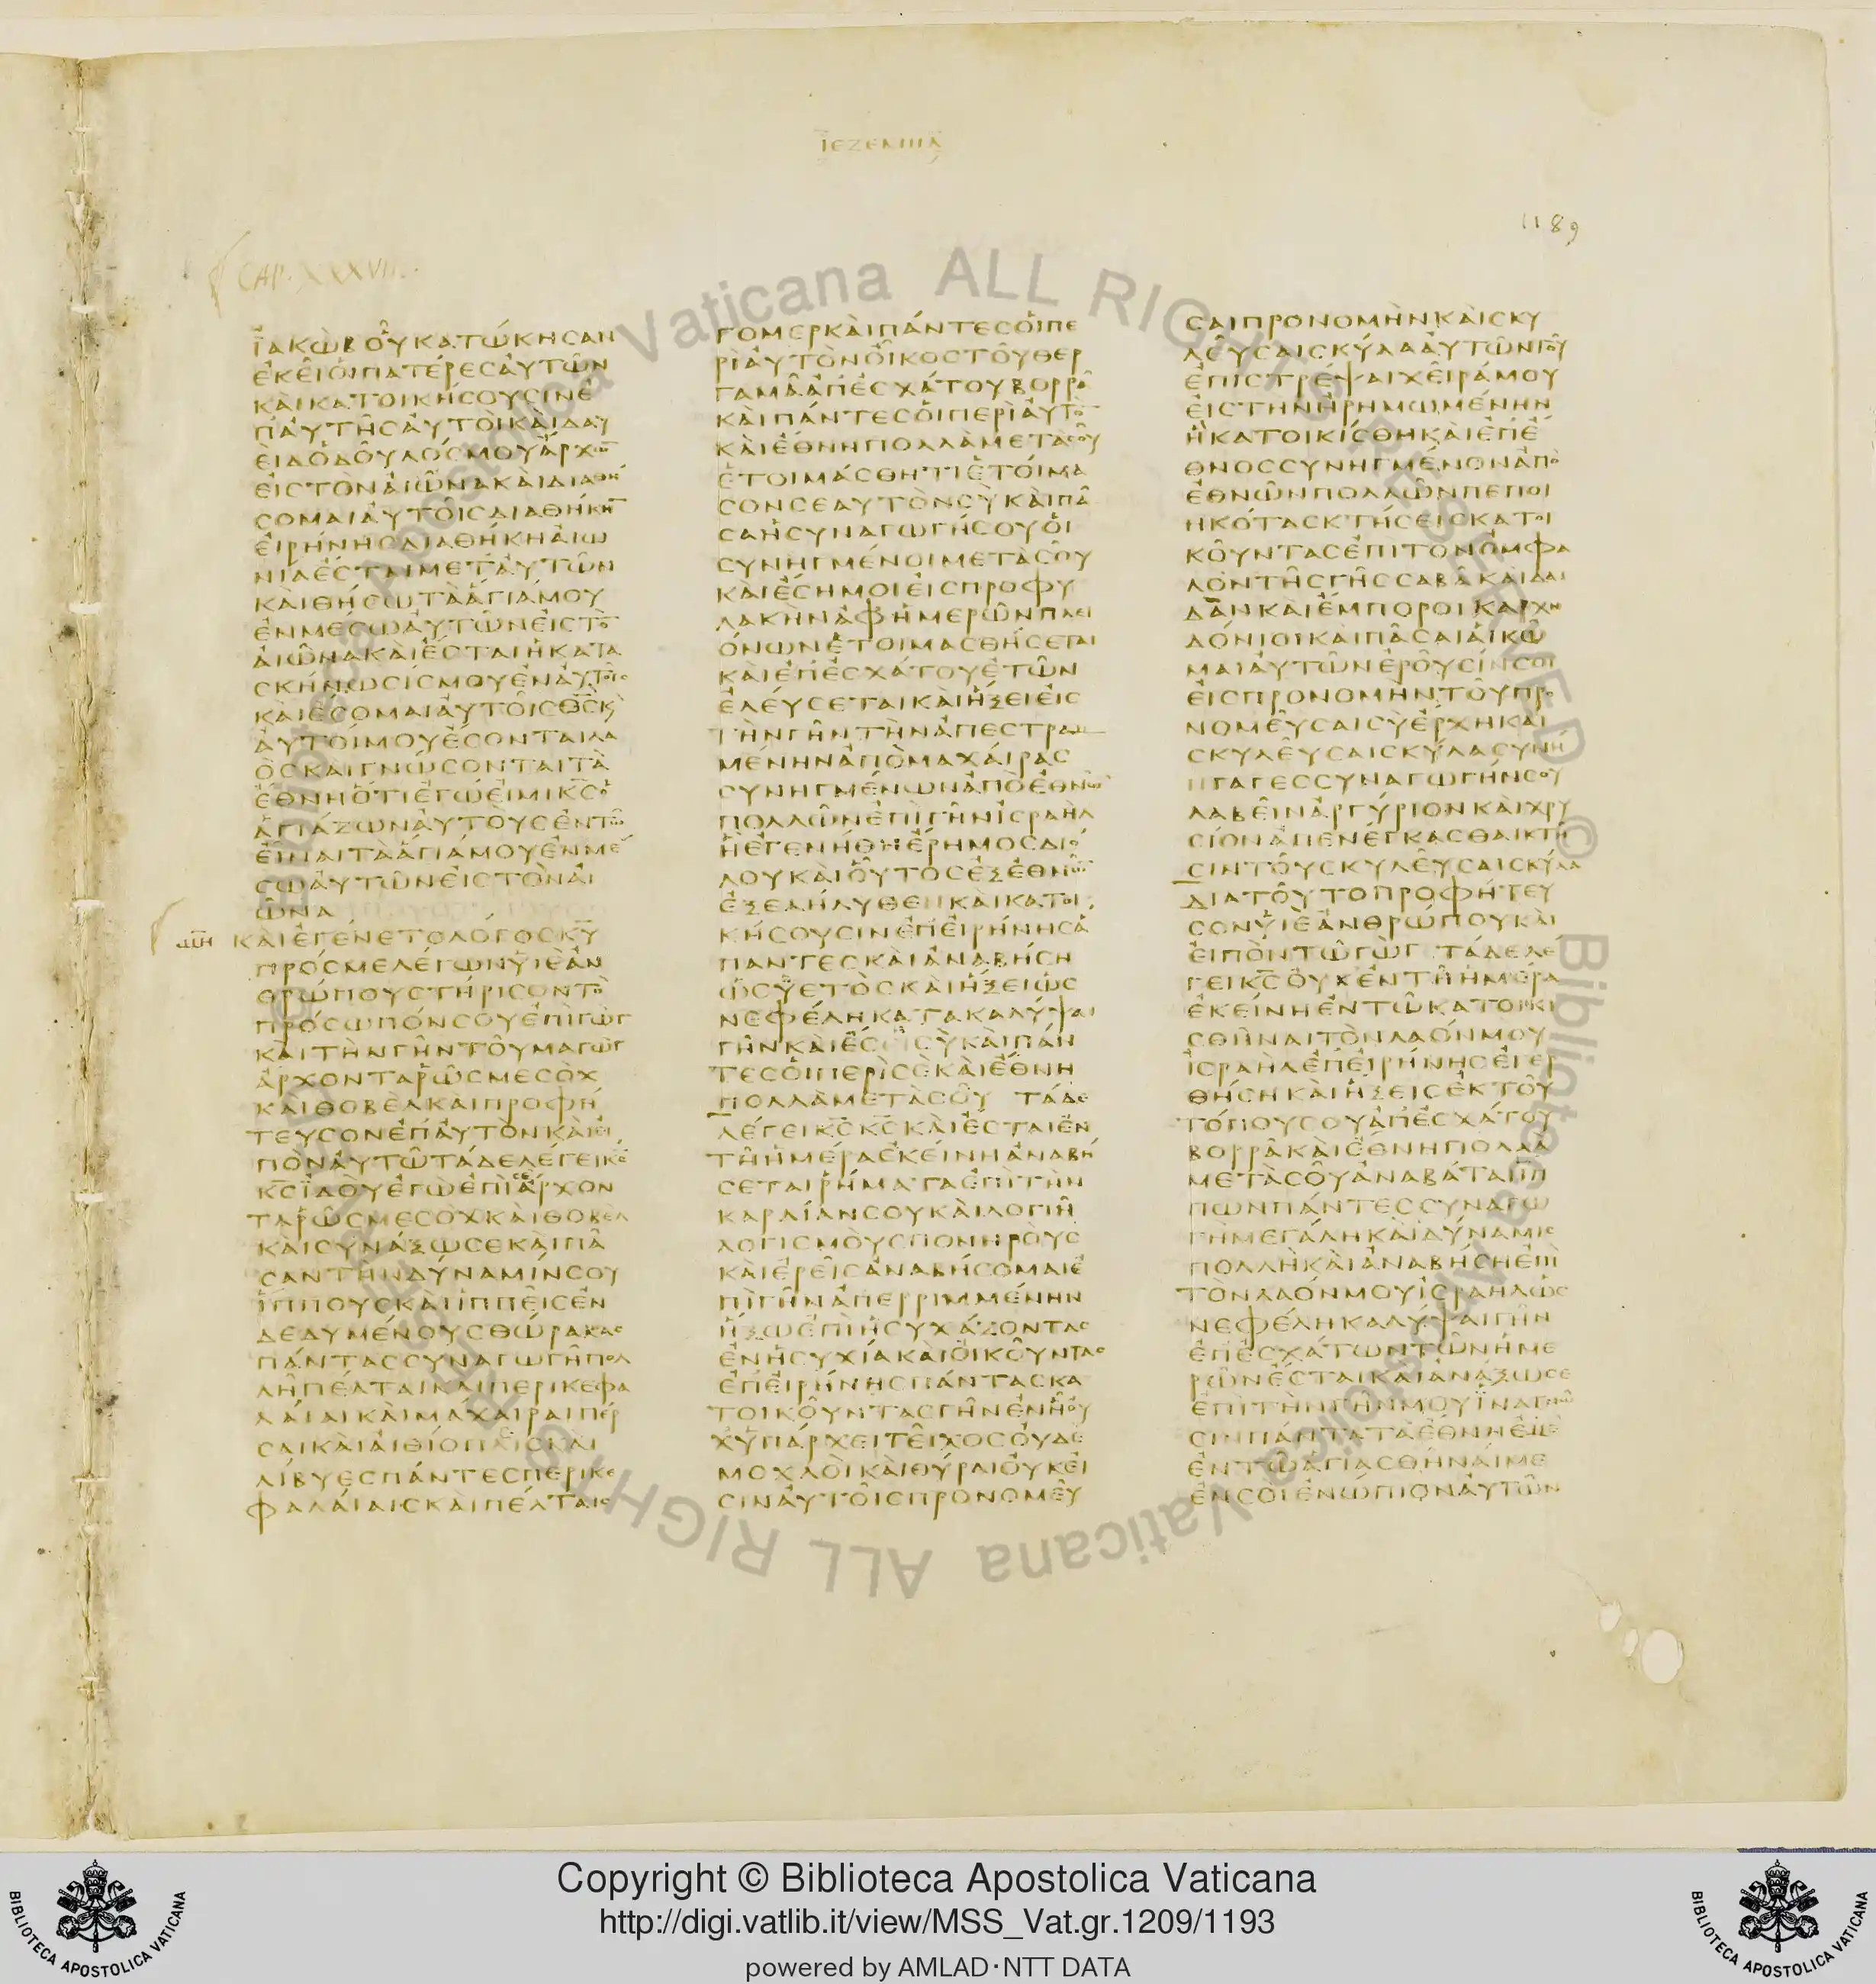 ΙΕΖΕΚΙΗΛ
1189
CAP. XXXVII.
ΪΑΚΩΒΟΥΚΑΤΩΚΗΣΑΝ
ΕΚΕΙΟΙΠΑΤΕΡΕΣΑΥΤΩΝ
ΚΑΙΚΑΤΟΙΚΗΣΟΥΣΙΝΕ
ΠΑΥΤΗΣΑΥΤΟΙΚΑΙΔΑΥ
ΕΙΔΟΔΟΥΛΟΣΜΟΥΑΡΧΩ̅
ΕΙΣΤΟΝΑΙΩΝΑΚΑΙΔΙΑΘΗ
ΣΟΜΑΙΑΥΤΟΙΣΔΙΑΘΗΚΗ̅
ΕΙΡΗΝΗΣΔΙΑΘΗΚΗΑΙΩ
ΝΙΑΕΣΤΑΙΜΕΤΑΥΤΩΝ
ΚΑΙΘΗΣΩΤΑΑΓΙΑΜΟΥ
ΕΝΜΕΣΩΑΥΤΩΝΕΙΣΤΟ̅
ΑΙΩΝΑΚΑΙΕΣΤΑΙΗΚΑΤΑ
ΣΚΗΝΩΣΙΣΜΟΥΕΝΑΥΤΟΙΣ
ΚΑΙΕΣΟΜΑΙΑΥΤΟΙΣΘ̅Σ̅Κ
ΑΥΤΟΙΜΟΥΕΣΟΝΤΑΙΛΑ
ΟΣΚΑΙΓΝΩΣΟΝΤΑΙΤΑ
ΕΘΝΗΟΤΙΕΓΩΕΙΜΙΚ̅Σ̅Ο
ΑΓΙΑΖΩΝΑΥΤΟΥΣΕΝΤΩ
ΕΙΝΑΙΤΑΑΓΙΑΜΟΥΕΝΜΕ
ΣΩΑΥΤΩΝΕΙΣΤΟΝΑΙ
ΩΝΑ
ΚΑΙΕΓΕΝΕΤΟΛΟΓΟΣΚ̅Υ̅
ΠΡΟΣΜΕΛΕΓΩΝΥΙΕΑΝ
ΘΡΩΠΟΥΣΤΗΡΙΣΟΝΤΟ
ΠΡΟΣΩΠΟΝΣΟΥΕΠΙΓΩΓ
ΚΑΙΤΗΝΓΗΝΤΟΥΜΑΓΩΓ
ΑΡΧΟΝΤΑΡΩΣΜΕΣΟΧ
ΚΑΙΘΟΒΕΛΚΑΙΠΡΟΦΗ
ΤΕΥΣΟΝΕΠΑΥΤΟΝΚΑΙΕΙ
ΠΟΝΑΥΤΩΤΑΔΕΛΕΓΕΙΚ̅Σ̅
Κ̅Σ̅ΙΔΟΥΕΓΩΕΠΙΣΕΑΡΧΟΝ
ΤΑΡΩΣΜΕΣΟΧΚΑΙΘΟΒΕΛ
ΚΑΙΣΥΝΑΞΩΣΕΚΑΙΠΑ
ΣΑΝΤΗΝΔΥΝΑΜΙΝΣΟΥ
ΙΠΠΟΥΣΚΑΙΙΠΠΕΙΣΕΝ
ΔΕΔΥΜΕΝΟΥΣΘΩΡΑΚΑΣ
ΠΑΝΤΑΣΣΥΝΑΓΩΓΗΠΟΛ
ΛΗΠΕΛΤΑΙΚΑΙΠΕΡΙΚΕΦΑ
ΛΑΙΑΙΚΑΙΜΑΧΑΙΡΑΙΠΕΡ
ΣΑΙΚΑΙΑΙΘΙΟΠΕΣΚΑΙ
ΛΙΒΥΕΣΠΑΝΤΕΣΠΕΡΙΚΕ
ΦΑΛΑΙΑΙΣΚΑΙΠΕΛΤΑΙΣ
ΓΟΜΕΡΚΑΙΠΑΝΤΕΣΟΙΠΕ
ΡΙΑΥΤΟΝΟΙΚΟΣΤΟΥΘΕΡ
ΓΑΜΑΑΠΕΣΧΑΤΟΥΒΟΡΡΑ
ΚΑΙΠΑΝΤΕΣΟΙΠΕΡΙΑΥΤΟ̅
ΚΑΙΕΘΝΗΠΟΛΛΑΜΕΤΑΣΟΥ
ΕΤΟΙΜΑΣΘΗΤΙΕΤΟΙΜΑ
ΣΟΝΣΕΑΥΤΟΝΣΥΚΑΙΠΑ
ΣΑΗΣΥΝΑΓΩΓΗΣΟΥΟΙ
ΣΥΝΗΓΜΕΝΟΙΜΕΤΑΣΟΥ
ΚΑΙΕΣΗΜΟΙΕΙΣΠΡΟΦΥ
ΛΑΚΗΝΑΦΗΜΕΡΩΝΠΛΕΙ
ΟΝΩΝΕΤΟΙΜΑΣΘΗΣΕΤΑΙ
ΚΑΙΕΠΕΣΧΑΤΟΥΕΤΩΝ
ΕΛΕΥΣΕΤΑΙΚΑΙΗΞΕΙΕΙΣ
ΤΗΝΓΗΝΤΗΝΑΠΕΣΤΡΑΜ
ΜΕΝΗΝΑΠΟΜΑΧΑΙΡΑΣ
ΣΥΝΗΓΜΕΝΩΝΑΠΟΕΘΝΩ̅
ΠΟΛΛΩΝΕΠΙΓΗΝΙΣΡΑΗΛ
ΗΕΓΕΝΗΘΗΕΡΗΜΟΣΔΙΟ
ΛΟΥΚΑΙΟΥΤΟΣΕΞΕΘΝΩ̅
ΕΞΕΛΗΛΥΘΕΝΚΑΙΚΑΤΟΙ
ΚΗΣΟΥΣΙΝΕΠΕΙΡΗΝΗΣΑ
ΠΑΝΤΕΣΚΑΙΑΝΑΒΗΣΗ
ΩΣΥΕΤΟΣΚΑΙΗΞΕΙΩΣ
ΝΕΦΕΛΗΚΑΤΑΚΑΛΥΨΑΙ
ΓΗΝΚΑΙΕΣΗΣΥΚΑΙΠΑΝ
ΤΕΣΟΙΠΕΡΙΣΕΚΑΙΕΘΝΗ
ΠΟΛΛΑΜΕΤΑΣΟΥ ΤΑΔΕ
ΛΕΓΕΙΚ̅Σ̅Κ̅Σ̅ΚΑΙΕΣΤΑΙΕΝ
ΤΗΗΜΕΡΑΕΚΕΙΝΗΑΝΑΒΗ
ΣΕΤΑΙΡΗΜΑΤΑΕΠΙΤΗΝ
ΚΑΡΔΙΑΝΣΟΥΚΑΙΛΟΓΙΗ
ΛΟΓΙΣΜΟΥΣΠΟΝΗΡΟΥΣ
ΚΑΙΕΡΕΙΣΑΝΑΒΗΣΟΜΑΙΕ
ΠΙΓΗΝΑΠΕΡΡΙΜΜΕΝΗΝ
ΗΞΩΕΠΙΗΣΥΧΑΖΟΝΤΑΣ
ΕΝΗΣΥΧΙΑΚΑΙΟΙΚΟΥΝΤΑΣ
ΕΠΕΙΡΗΝΗΣΠΑΝΤΑΣΚΑ
ΤΟΙΚΟΥΝΤΑΣΓΗΝΕΝΗΟΥ
ΧΥΠΑΡΧΕΙΤΕΙΧΟΣΟΥΔΕ
ΜΟΧΛΟΙΚΑΙΘΥΡΑΙΟΥΚΕΙ
ΣΙΝΑΥΤΟΙΣΠΡΟΝΟΜΕΥ
ΣΑΙΠΡΟΝΟΜΗΝΚΑΙΣΚΥ
ΛΕΥΣΑΙΣΚΥΛΑΑΥΤΩΝΤΟΥ
ΕΠΙΣΤΡΕΨΑΙΧΕΙΡΑΜΟΥ
ΕΙΣΤΗΝΗΡΗΜΩΜΕΝΗΝ
ΗΚΑΤΟΙΚΙΣΘΗΚΑΙΕΠΕ
ΘΝΟΣΣΥΝΗΓΜΕΝΟΝΑΠΟ
ΕΘΝΩΝΠΟΛΛΩΝΠΕΠΟΙ
ΗΚΟΤΑΣΚΤΗΣΕΙΣΚΑΤΟΙ
ΚΟΥΝΤΑΣΕΠΙΤΟΝΟΜΦΑ
ΛΟΝΤΗΣΓΗΣΣΑΒΑΚΑΙΔΑΙ
ΔΑΝΚΑΙΕΜΠΟΡΟΙΚΑΡΧΗ
ΔΟΝΙΟΙΚΑΙΠΑΣΑΙΑΙΚΩ
ΜΑΙΑΥΤΩΝΕΡΟΥΣΙΝΣΟΙ
ΕΙΣΠΡΟΝΟΜΗΝΤΟΥΠΡΟ
ΝΟΜΕΥΣΑΙΣΥΕΡΧΗΚΑΙ
ΣΚΥΛΕΥΣΑΙΣΚΥΛΑΣΥΝΗ
ΓΑΓΕΣΣΥΝΑΓΩΓΗΝΣΟΥ
ΛΑΒΕΙΝΑΡΓΥΡΙΟΝΚΑΙΧΡΥ
ΣΙΟΝΑΠΕΝΕΓΚΑΣΘΑΙΚΤΗ
ΣΙΝΤΟΥΣΚΥΛΕΥΣΑΙΣΚΥΛΑ
ΔΙΑΤΟΥΤΟΠΡΟΦΗΤΕΥ
ΣΟΝΥΙΕΑΝΘΡΩΠΟΥΚΑΙ
ΕΙΠΟΝΤΩΓΩΓ ΤΑΔΕΛΕ
ΓΕΙΚ̅Σ̅ΟΥΧΕΝΤΗΗΜΕΡΑ
ΕΚΕΙΝΗΕΝΤΩΚΑΤΟΙΚΙ
ΣΘΗΝΑΙΤΟΝΛΑΟΝΜΟΥ
ΙΣΡΑΗΛΕΠΕΙΡΗΝΗΣΕΓΕΡ
ΘΗΣΗΚΑΙΗΞΕΙΣΕΚΤΟΥ
ΤΟΠΟΥΣΟΥΑΠΕΣΧΑΤΟΥ
ΒΟΡΡΑΚΑΙΕΘΝΗΠΟΛΛΑ
ΜΕΤΑΣΟΥΑΝΑΒΑΤΑΙΙΠ
ΠΩΝΠΑΝΤΕΣΣΥΝΑΓΩ
ΓΗΜΕΓΑΛΗΚΑΙΔΥΝΑΜΙΣ
ΠΟΛΛΗΚΑΙΑΝΑΒΗΣΗΕΠΙ
ΤΟΝΛΑΟΝΜΟΥΙΣΡΑΗΛΩΣ
ΝΕΦΕΛΗΚΑΛΥΨΑΙΓΗΝ
ΕΠΕΣΧΑΤΩΝΤΩΝΗΜΕ
ΡΩΝΕΣΤΑΙΚΑΙΑΝΑΞΩΣΕ
ΕΠΙΤΗΝΓΗΝΜΟΥΙΝΑΓΝΩ
ΣΙΝΠΑΝΤΑΤΑΕΘΝΗΕΜΕ
ΕΝΤΩΑΓΙΑΣΘΗΝΑΙΜΕ
ΕΝΣΟΙΕΝΩΠΙΟΝΑΥΤΩΝ
Copyright © Biblioteca Apostolica Vaticana
http://digi.vatlib.it/view/MSS_Vat.gr.1209/1193
powered by AMLAD·NTT DATA
BIBLIOTECA APOSTOLICA VATICANA
BIBLIOTECA APOSTOLICA VATICANA